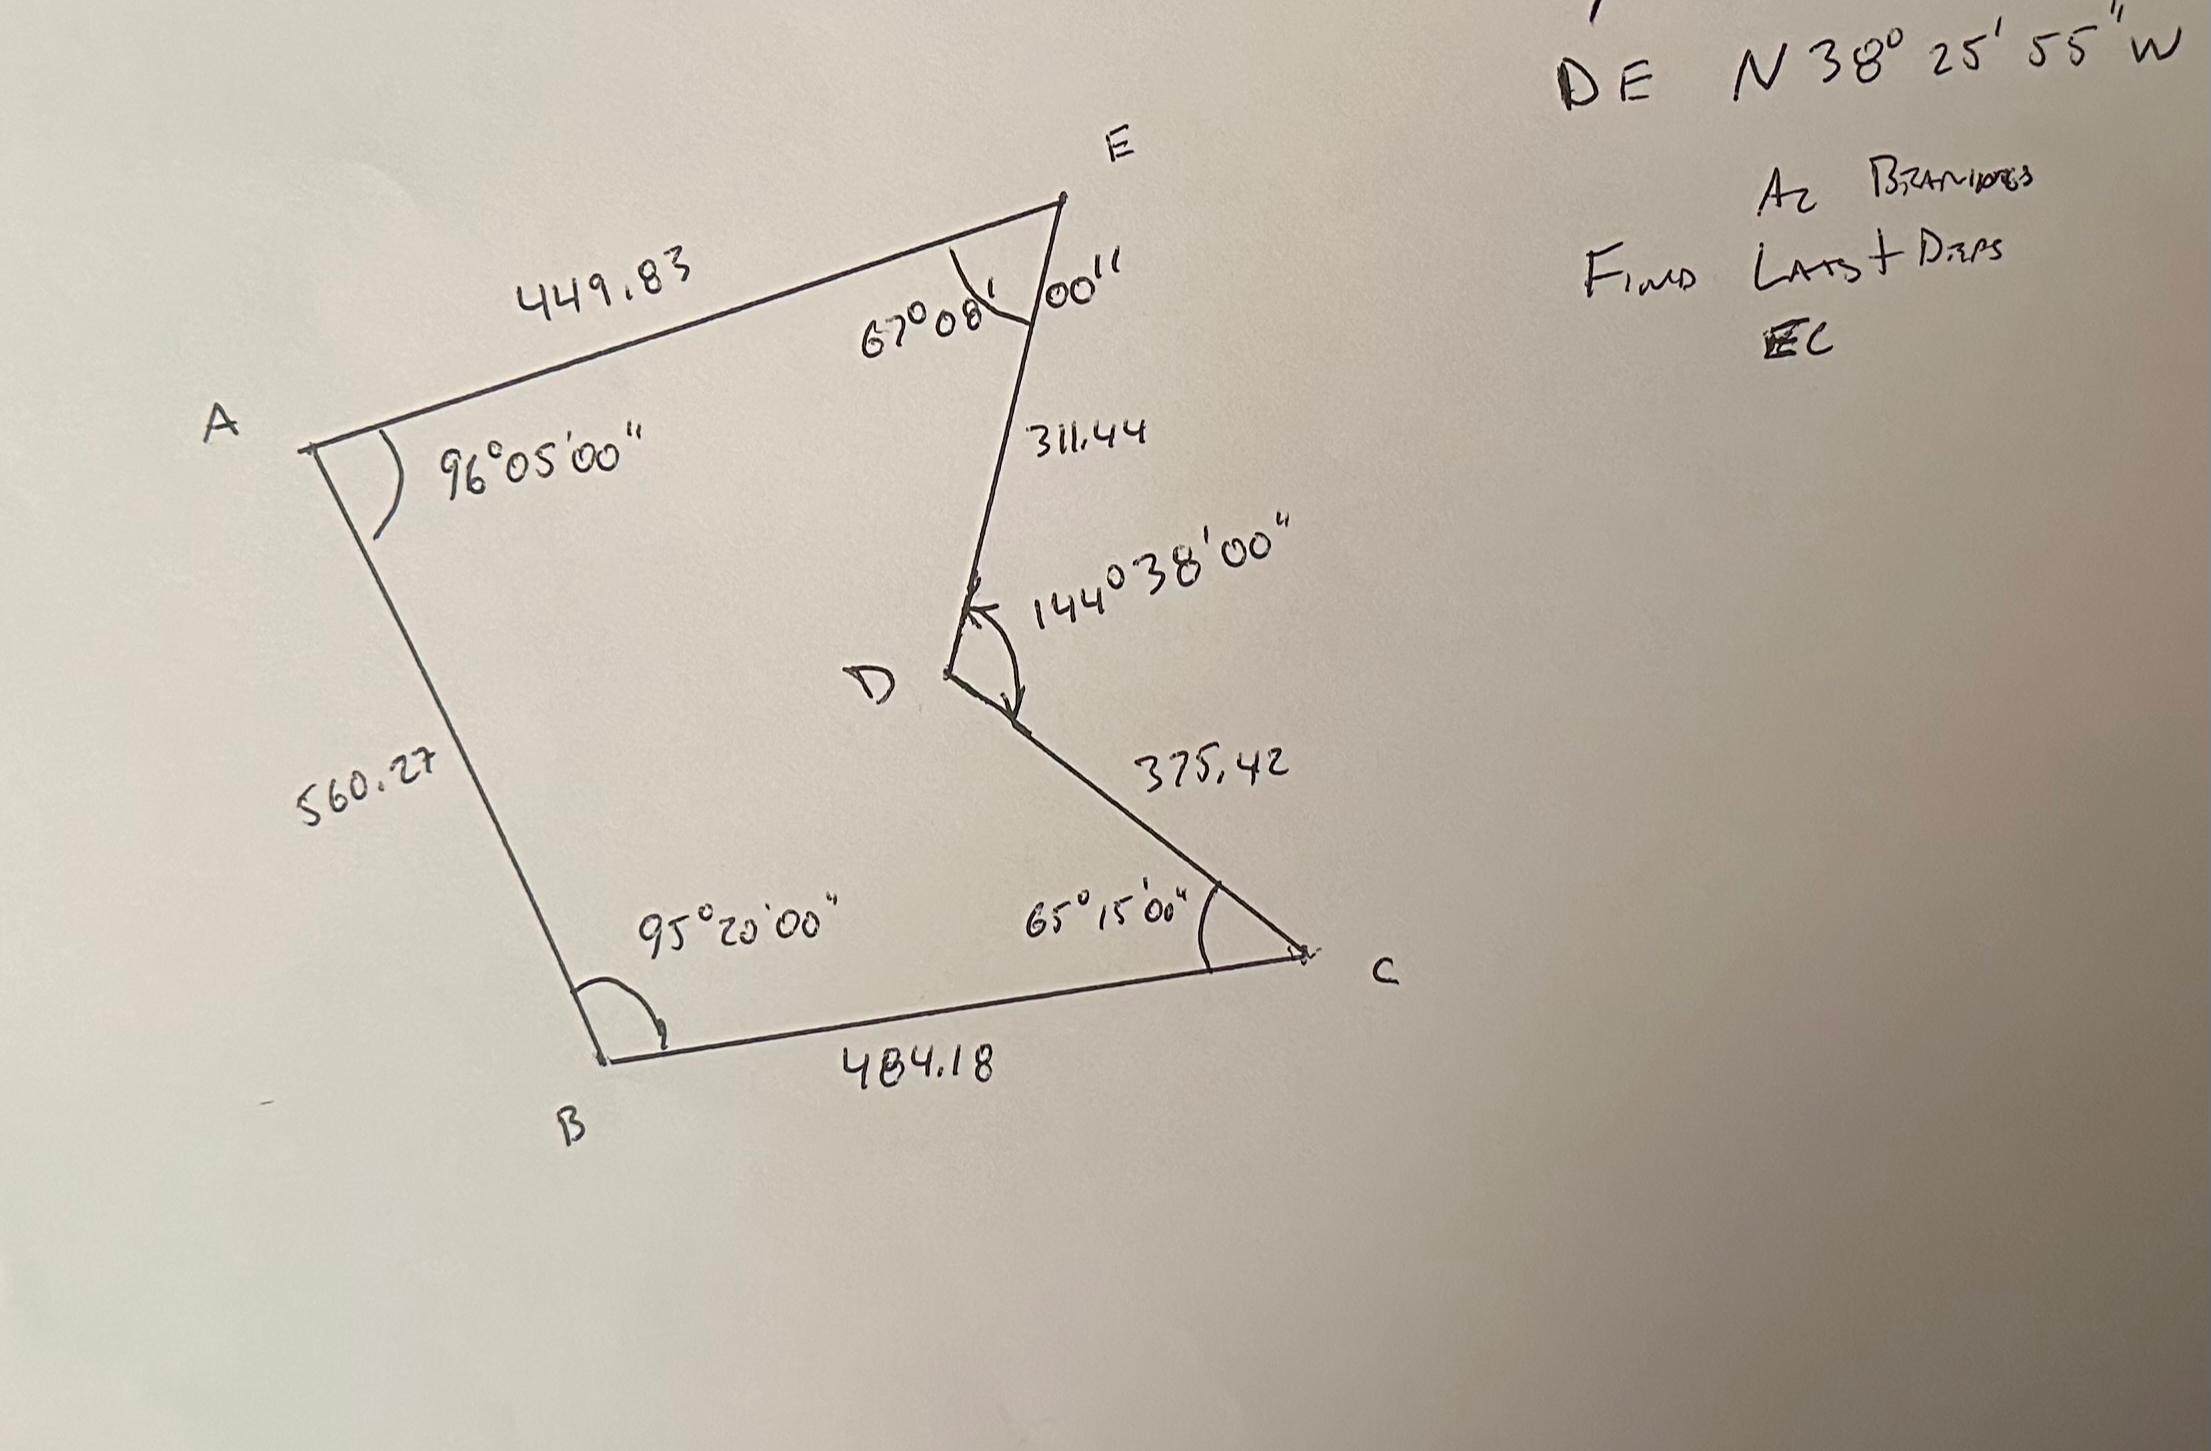 DE N38° 25' 55" W
Az Bearings
Find Lats + Deps
EC
E
449.83
67°08' 00"
A
96°05'00"
311.44
144°38'00"
D
560.27
375.42
95°20'00"
65°15'00"
C
484.18
B